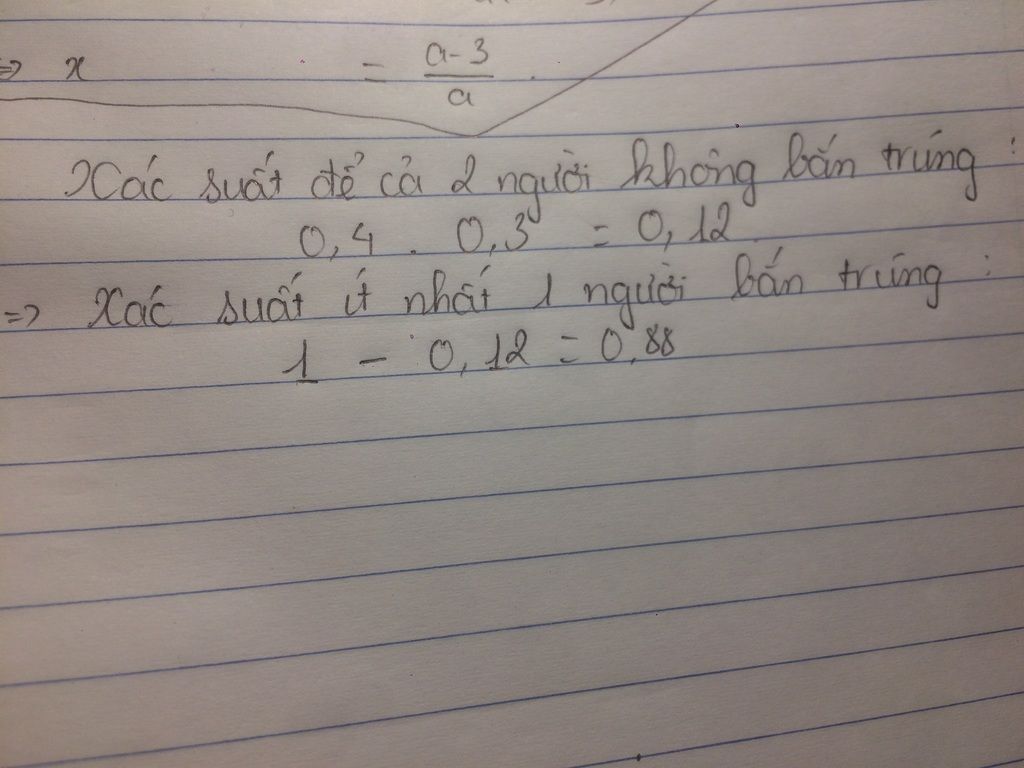 => x = a-3 / a .
Xác suất để cả 2 người không bắn trúng :
0,4 . 0,3 = 0,12
=> Xác suất ít nhất 1 người bắn trúng :
1 - 0,12 = 0,88